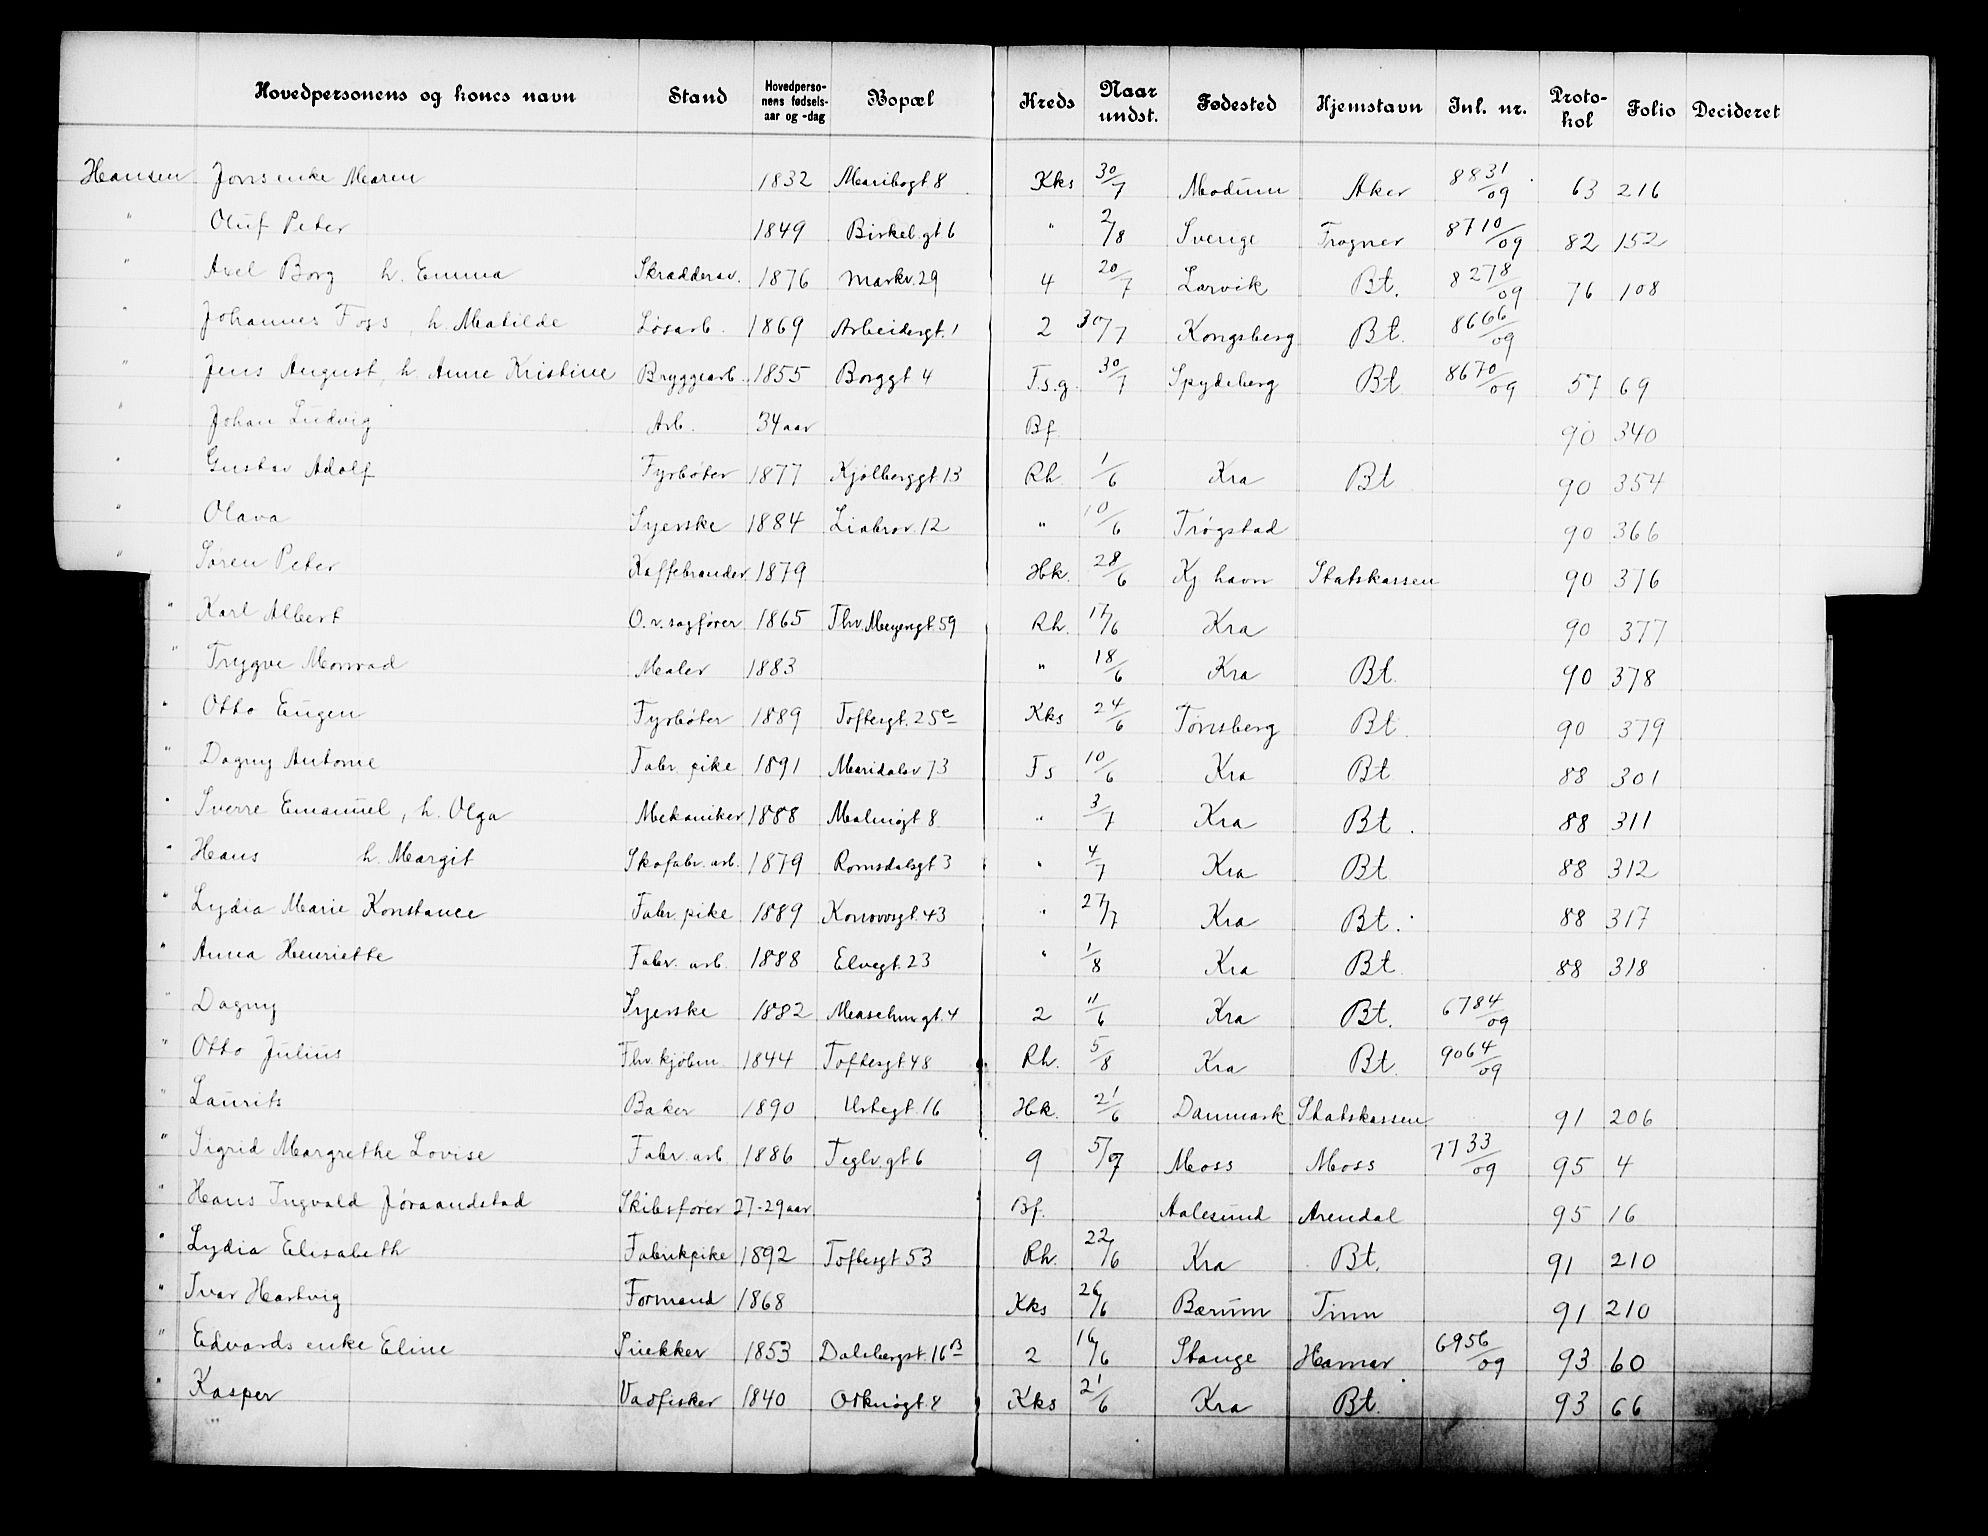 Hovedpersonens og kones navn Stand Hovedperso-nens fødsels-aar og -dag Bopæl Kreds Naar undst. Fødested Hjemstavn Inl. nr. Proto-kol Folio Decideret
Hansen Jens enke Maren 1832 Maribogt 8 Kks 30/7 Modum Aker 8831/09 63 216
" Oluf Peter 1849 Birkel.gt 6 " 2/8 Sverige Trøgner 8710/09 82 152
" Axel Borg h. Emma Skrædderav. 1876 Markv. 29 4 20/7 Larvik Bt. 8278/09 76 108
" Johannes Foss, h. Matilde Løsarb. 1869 Arbeidergt. 1 2 30/7 Kongsberg Bt. 8666/09
" Jens August, h Anne Kristine Bryggearb. 1855 Borggt 4 T.s.g. 30/7 Spydeberg Bt 8670/09 57 69
" Johan Ludvig Arb. 34 aar Bf 90 340
" Gustav Adolf Fyrbøter 1877 Kjølberggt 13 Rh. 1/6 Kra Bt 90 354
" Olava Syerske 1884 Liabrov. 12 " 10/6 Trøgstad 90 366
" Søren Peter Kaffebrander 1879 Hk. 28/6 Kj havn Statskassen 90 376
" Karl Albert O.r. sagfører 1865 Thv. Meyersgt. 59 Rh. 17/6 Kra 90 377
" Trygve Monrad Maler 1883 " 18/6 Kra Bt. 90 378
" Otto Eugen Fyrbøter 1889 Toftesgt. 25e Kks 24/6 Tønsberg Bt. 90 379
" Dagny Antonie Fabr. pike 1891 Maridalsv 73 Ts 10/6 Kra Bt 88 301
" Sverre Emanuel, h. Olga Mekaniker 1888 Malmøgt 8. " 3/7 Kra Bt. 88 311
" Hans h. Margit Skofabr. arb. 1879 Romsdalsgt 3 " 4/7 Kra Bt 88 312
" Lydia Marie Konstance Fabr. pike 1889 Korsvosgt. 43 " 27/7 Kra Bt. 88 317
" Anna Henriette Fabr. arb. 1888 Elvegt. 23 " 1/8 Kra Bt. 88 318
" Dagny Syerske 1882 2 11/6 Kra Bt. 6784/09
" Otto Julius Fhv. kjøbm. 1844 Toftesgt 48 Rh. 5/8 Kra Bt. 9064/09
" Laurits Baker 1890 Urtegt. 16 Hk. 21/6 Danmark Statskassen 91 206
" Sigrid Margrethe Lovise Fabr. arb 1886 Teglv.gt 6 9 5/07 Moss Moss 7733/09 95 4
" Hans Ingvald Jøraandstad Skibsfører 27-29 aar Bf. Aalesund Arendal 95 16
" Lydia Elisabeth Fabrikpike 1892 Toftesgt 53 Rh. 22/6 Kra Bt. 91 210
" Ivar Hartvig Formand 1868 Kks 26/6 Bærum Tinn 91 210
" Edvards enke Eline Snekker 1853 Dalsbergst. 16B 2 16/6 Stange Hamar 6956/09 93 60
" Kasper Vadfisker 1840 Orknøgt. 8 Kks 21/6 Kra Bt. 93 66
"